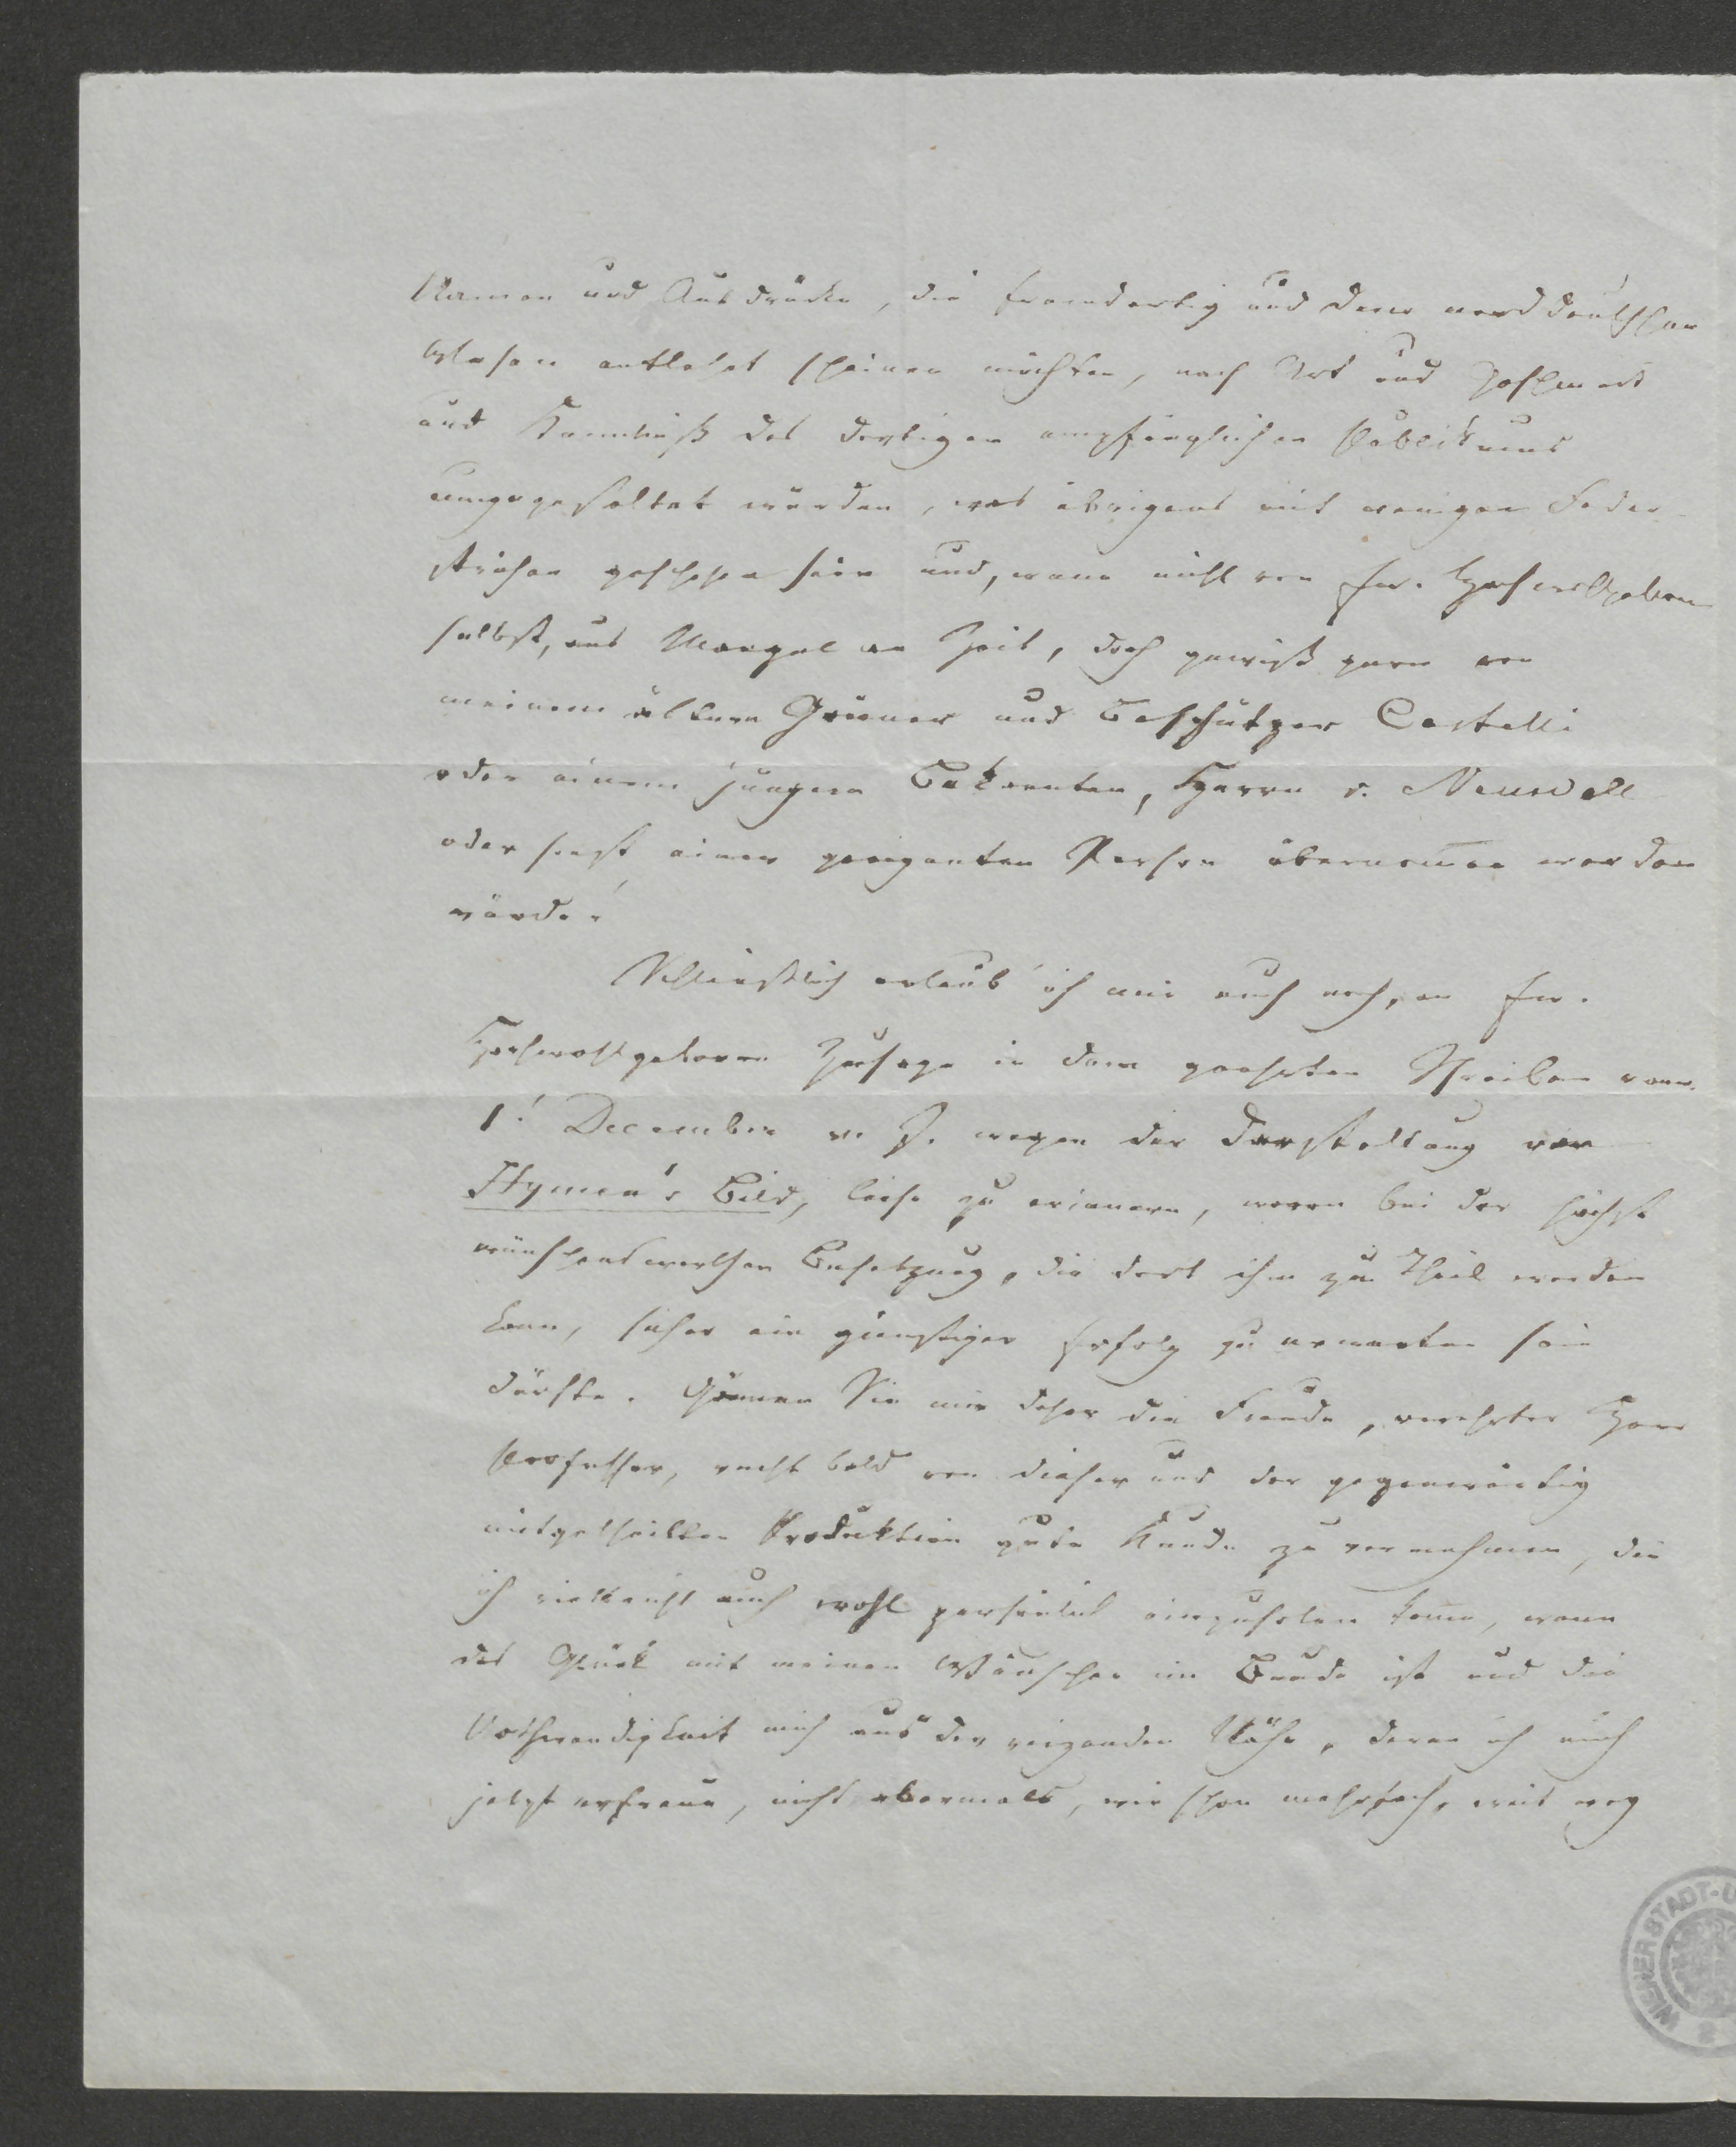 Namen und Ausdrücke, die fremdartig und dem norddeutschen
Wesen entlehnt scheinen möchten, nach Art und
und Kenntniß des dortigen empfänglichen Publikums
umgestaltet würden, was übrigens mit wenigen Feder-
strichen geschehen sein und, wenn nicht von Ew. Hochwohlgeboren
selbst, aus Mangel an Zeit, doch gewiß gern von
meinem ältern Gönner und Beschützer Castelli
oder einem jüngern Bekannten, Herrn v. Neuwall
oder sonst einer geeigneten Person übernommen werden
würde!
Schließlich erlaub' ich mir auch noch, an Ew.
Hochwohlgeboren Zusage in dem geehrten Schreiben vom
1! December v. J. wegen der Darstellung von
Hymen's Bild, leise zu erinnern, wovon bei der höchst
wünschenswerthen Besetzung, die dort ihm zu Theil werden
kann, sicher ein günstiger Erfolg zu erwarten sein
dürfte. Gönnen Sie mir daher die Freude, verehrter Herr
Professor, recht bald von dieser und der gegenwärtig
mitgetheilten Produktion gute Kunde zu vernehmen, die
ich vielleicht auch wohl persönlich einzuholen komme, wenn
das Glück mit meinen Wünschen im Bunde ist und die
Nothwendigkeit mich aus der reizenden Nähe, deren ich mich
jetzt erfreue, nicht abermals, wie schon mehrfach, weit weg
WIENER STADT-